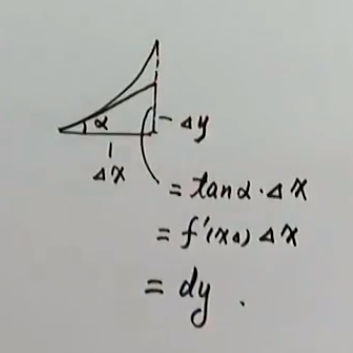 α
- Δy
Δx
= tanα·Δx
= f'(x₀) Δx
= dy.